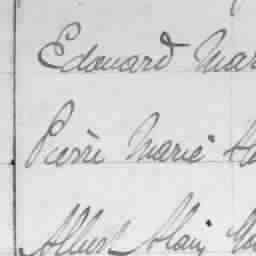 Edouard Mar
Pierre Marie
Albert Alain